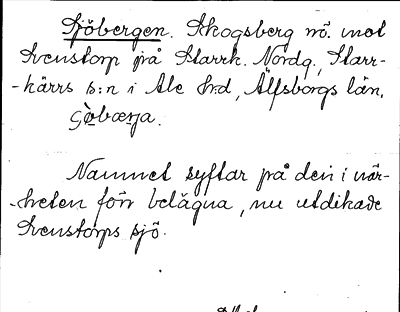 Sjöbergen. Skogsberg nö. inot
Svenstorp på Starrk. Nordg., Starr-
-kärrs s:n i Ale hrd, Älfsborgs län.
Sjöbærja.
Namnet syftar på den i när-
-heten förr belägna, nu utdikade
Svenstorps sjö.